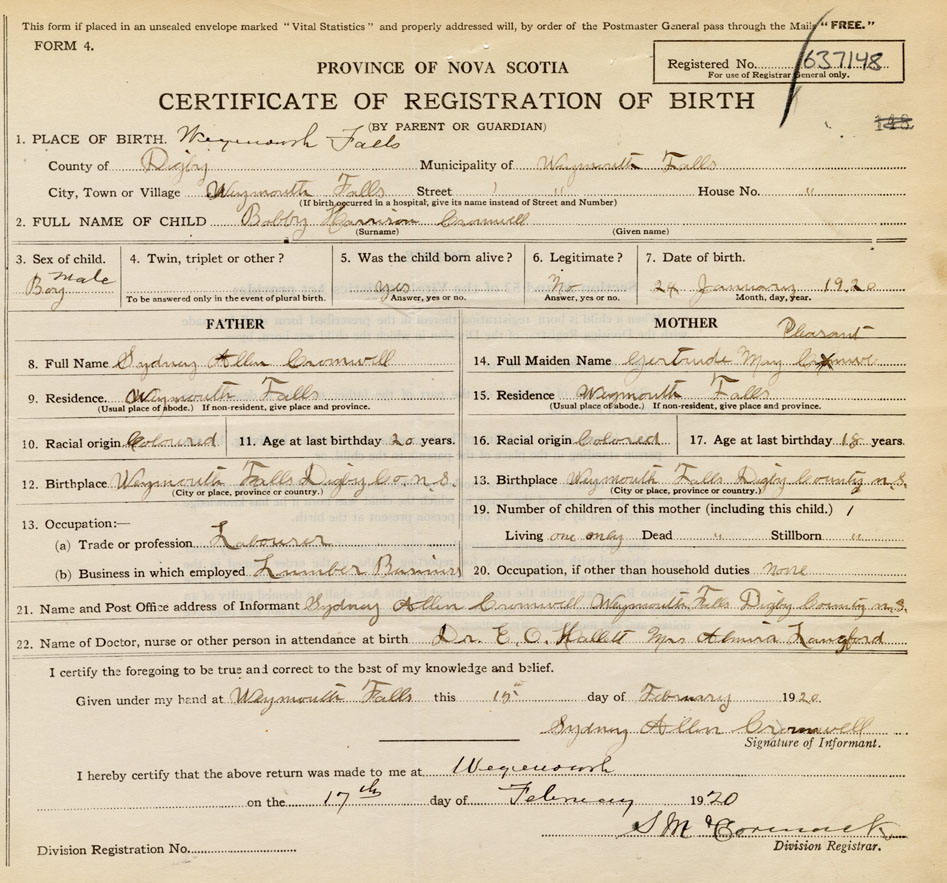 This form if placed in an unsealed envelope marked "Vital Statistics" and properly addressed will, by order of the Postmaster General pass through the Mails "FREE."
FORM 4.
Registered No. 637148
For use of Registrar General only.
PROVINCE OF NOVA SCOTIA
CERTIFICATE OF REGISTRATION OF BIRTH
(BY PARENT OR GUARDIAN)
148
1. PLACE OF BIRTH. Weymouth Falls
County of Digby Municipality of Weymouth Falls
City, Town or Village Weymouth Falls Street " " House No. "
(If birth occurred in a hospital, give its name instead of Street and Number)
2. FULL NAME OF CHILD Bobby Harrison Cromwell
(Surname) (Given name)
3. Sex of child. 4. Twin, triplet or other? 5. Was the child born alive? 6. Legitimate? 7. Date of birth.
Male
Boy Yes No 24 January 1920
To be answered only in the event of plural birth. Answer, yes or no. Answer, yes or no. Month, day, year.
FATHER MOTHER
Pleasant
8. Full Name Sydney Allen Cromwell 14. Full Maiden Name Gertrude May
9. Residence. Weymouth Falls 15. Residence Weymouth Falls
(Usual place of abode.) If non-resident, give place and province. (Usual place of abode.) If non-resident, give place and province.
10. Racial origin Coloured 11. Age at last birthday 20 years. 16. Racial origin Colored 17. Age at last birthday 18 years.
12. Birthplace Weymouth Falls Digby Co. n.S. 13. Birthplace Weymouth Falls Digby County n.S.
(City or place, province or country.) (City or place, province or country.)
13. Occupation:— 19. Number of children of this mother (including this child.) 1
(a) Trade or profession Labourer Living one only Dead " Stillborn "
(b) Business in which employed Lumber Business 20. Occupation, if other than household duties none
21. Name and Post Office address of Informant Sydney Allen Cromwell Weymouth Falls Digby County n.S.
22. Name of Doctor, nurse or other person in attendance at birth Dr. E. O. Hallett Mrs Almira Langford
I certify the foregoing to be true and correct to the best of my knowledge and belief.
Given under my hand at Weymouth Falls this day of February 1920
Sydney Allen Cromwell
Signature of Informant.
I hereby certify that the above return was made to me at Weymouth
on the 17th day of February 1920
S McCormack
Division Registrar.
Division Registration No.